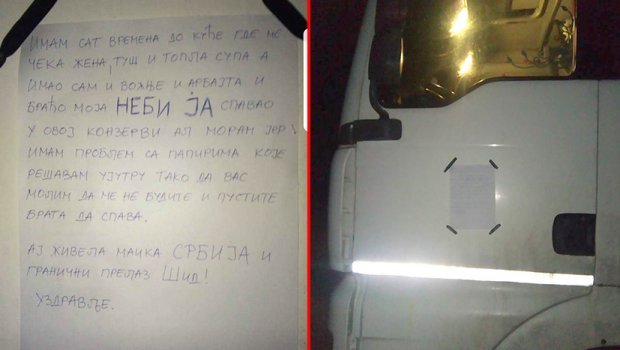 ИМАМ САТ ВРЕМЕНА ДО КУЋЕ ГДЕ МЕ
ЧЕКА ЖЕНА, ТУШ И ТОПЛА СУПА А
ИМАО САМ И ВОЖЊЕ И АРБАЈТА И
БРАЋО МОЈА НЕБИ ЈА СПАВАО
У ОВОЈ КОНЗЕРВИ АЛ МОРАМ ЈЕР
ИМАМ ПРОБЛЕМ СА ПАПИРИМА КОЈЕ
РЕШАВАМ УЈУТРУ ТАКО ДА ВАС
МОЛИМ ДА МЕ НЕ БУДИТЕ И ПУСТИТЕ
БРАТА ДА СПАВА.
АЈ ЖИВЕЛА МАЈКА СРБИЈА И
ГРАНИЧНИ ПРЕЛАЗ ШИД!
УЗДРАВЉЕ.